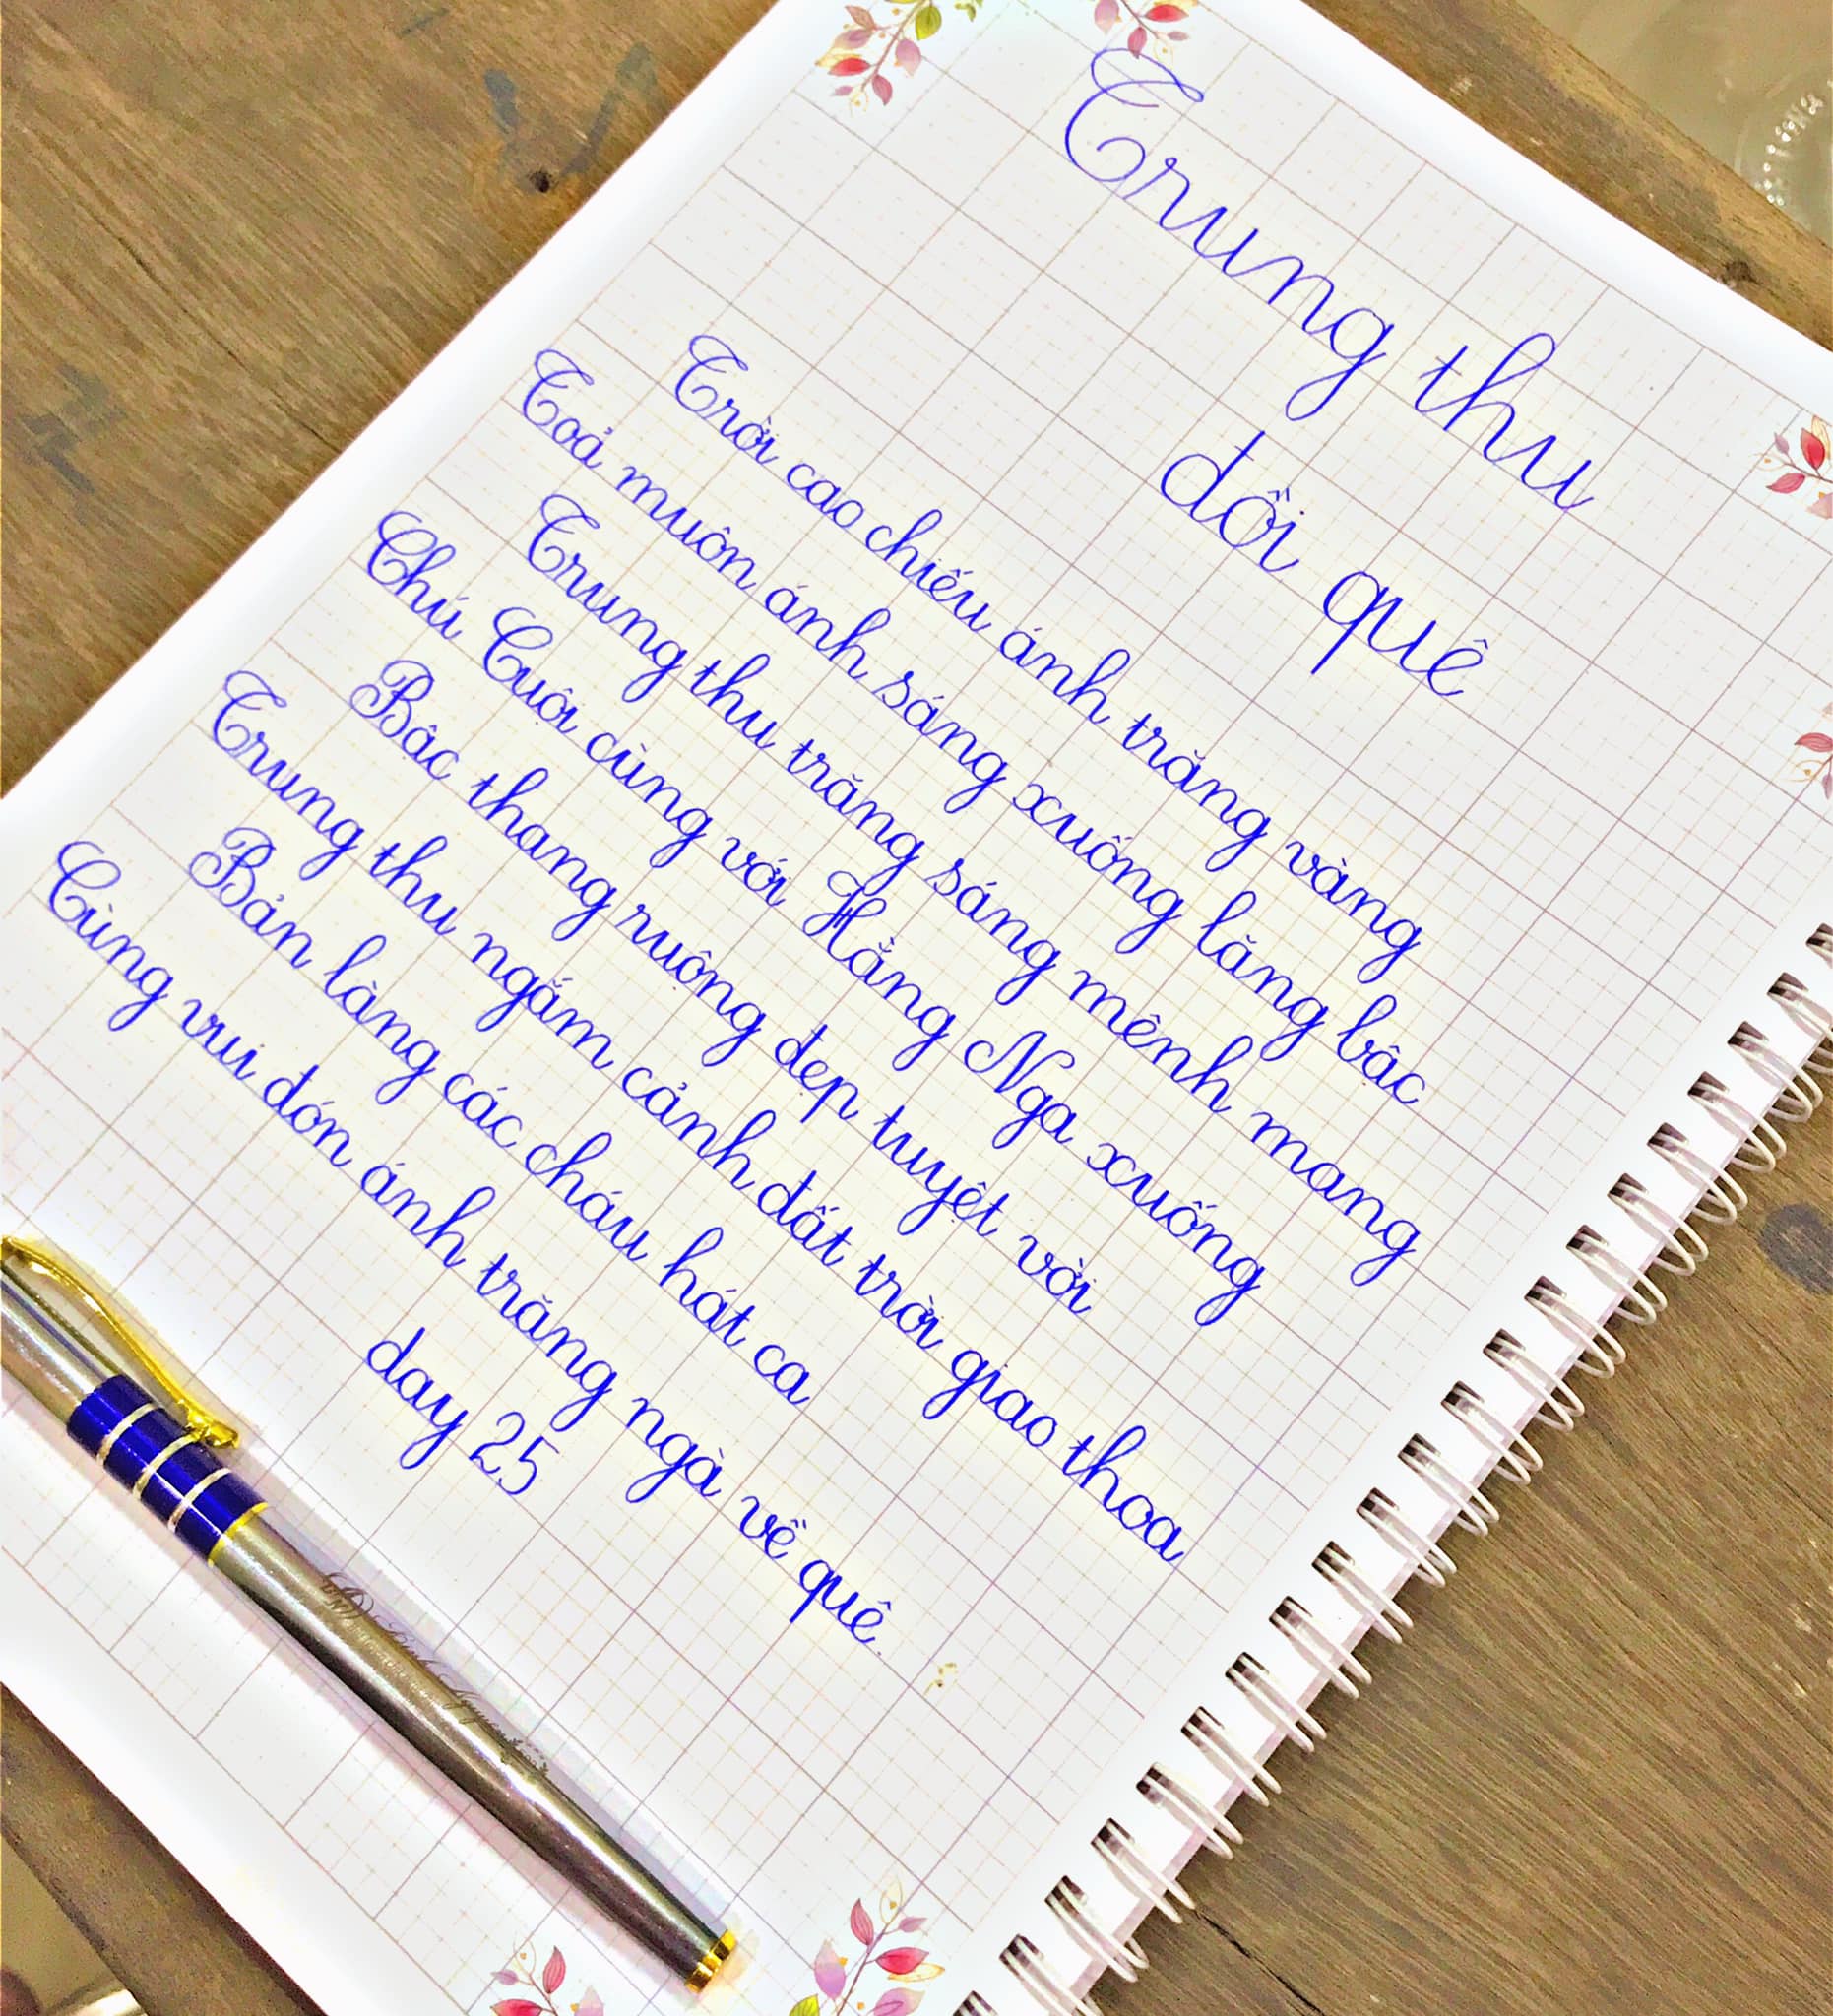 Trung thu
đồi quê
Trời cao chiếu ánh trăng vàng
Toả muôn ánh sáng xuống lăng bậc
Trung thu trăng sáng mênh mang
Chú Cuội cùng với Hằng Nga xuống
Bậc thang ruộng đẹp tuyệt vời
Trung thu ngắm cảnh đất trời giao thoa
Bản làng các cháu hát ca
Cùng vui đón ánh trăng ngà về quê
day 25